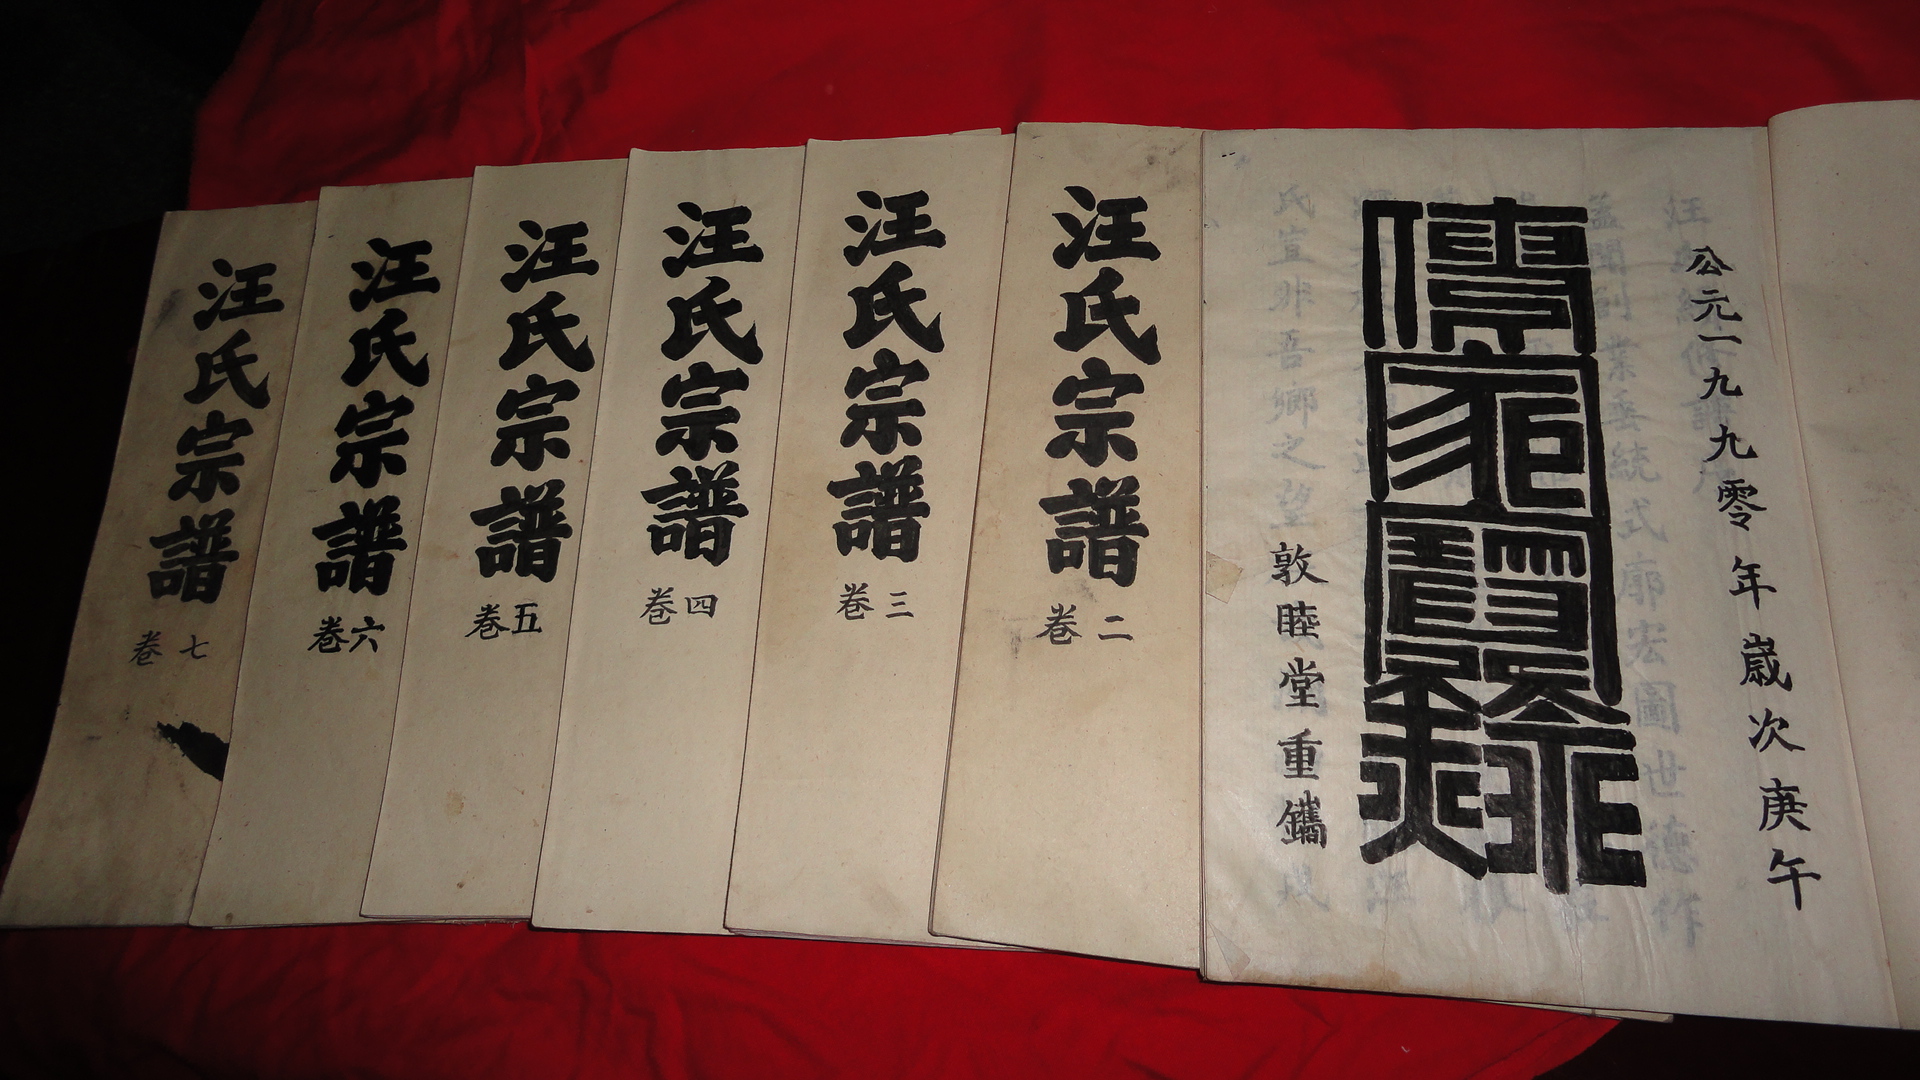 公元一九九零年歲次庚午
傳家寶
敦睦堂重鑴
汪氏宗譜
卷二
汪氏宗譜
卷三
汪氏宗譜
卷四
汪氏宗譜
卷五
汪氏宗譜
卷六
汪氏宗譜
卷七